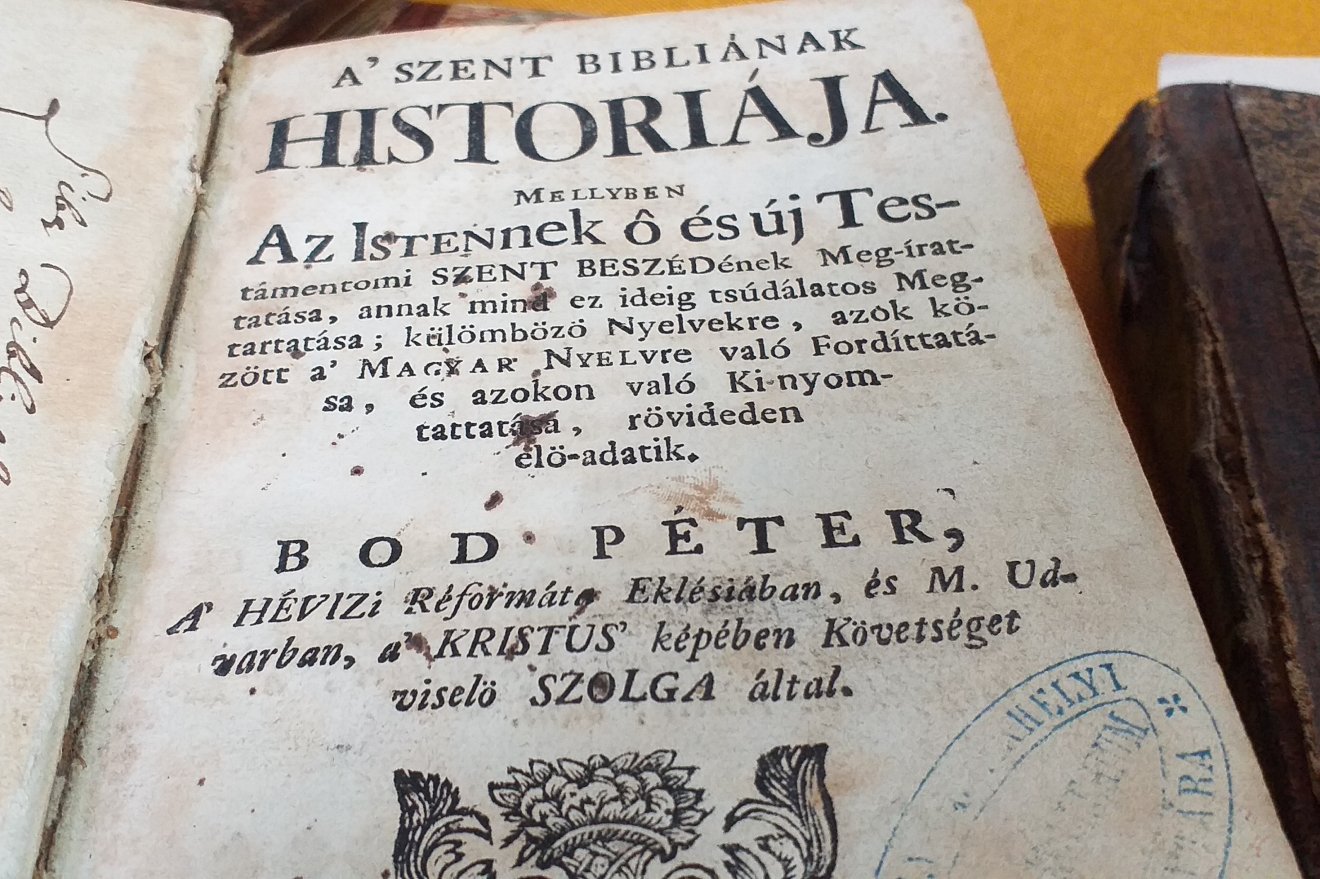 A' SZENT BIBLIÁNAK
HISTORIÁJA.
MELLYBEN
AZ ISTENnek ô és új Tes-
támentomi SZENT BESZÉDének Meg-írat-
tatása, annak mind ez ideig tsúdálatos Meg-
tartatása; külömbözö Nyelvekre, azok kö-
zött a' MAGYAR NYELVre való Fordíttatá-
sa, és azokon való Ki-nyom-
tattatása, rövideden
elö-adatik.
BOD PÉTER,
A' HÉVIZi Réformáta Eklésiában, és M. Ud-
varban, a' KRISTUS' képében Követséget
viselö SZOLGA által.